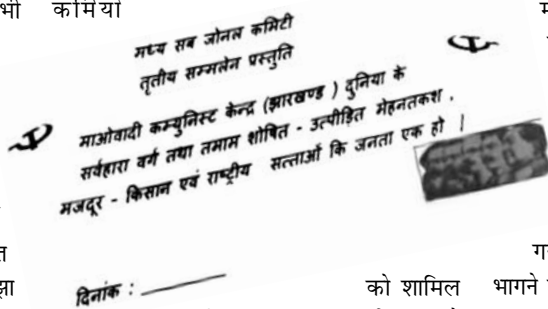 भी कमियों
मध्य सब जोनल कमिटी
तृतीय सम्मलेन प्रस्तुति
माओवादी कम्युनिस्ट केन्द्र (झारखण्ड ) दुनिया के
सर्वहारा वर्ग तथा तमाम शोषित - उत्पीड़ित मेहनतकश ,
मजदूर - किसान एवं राष्ट्रीय सत्ताओं कि जनता एक हो |
दिनांक :
को शामिल भागने